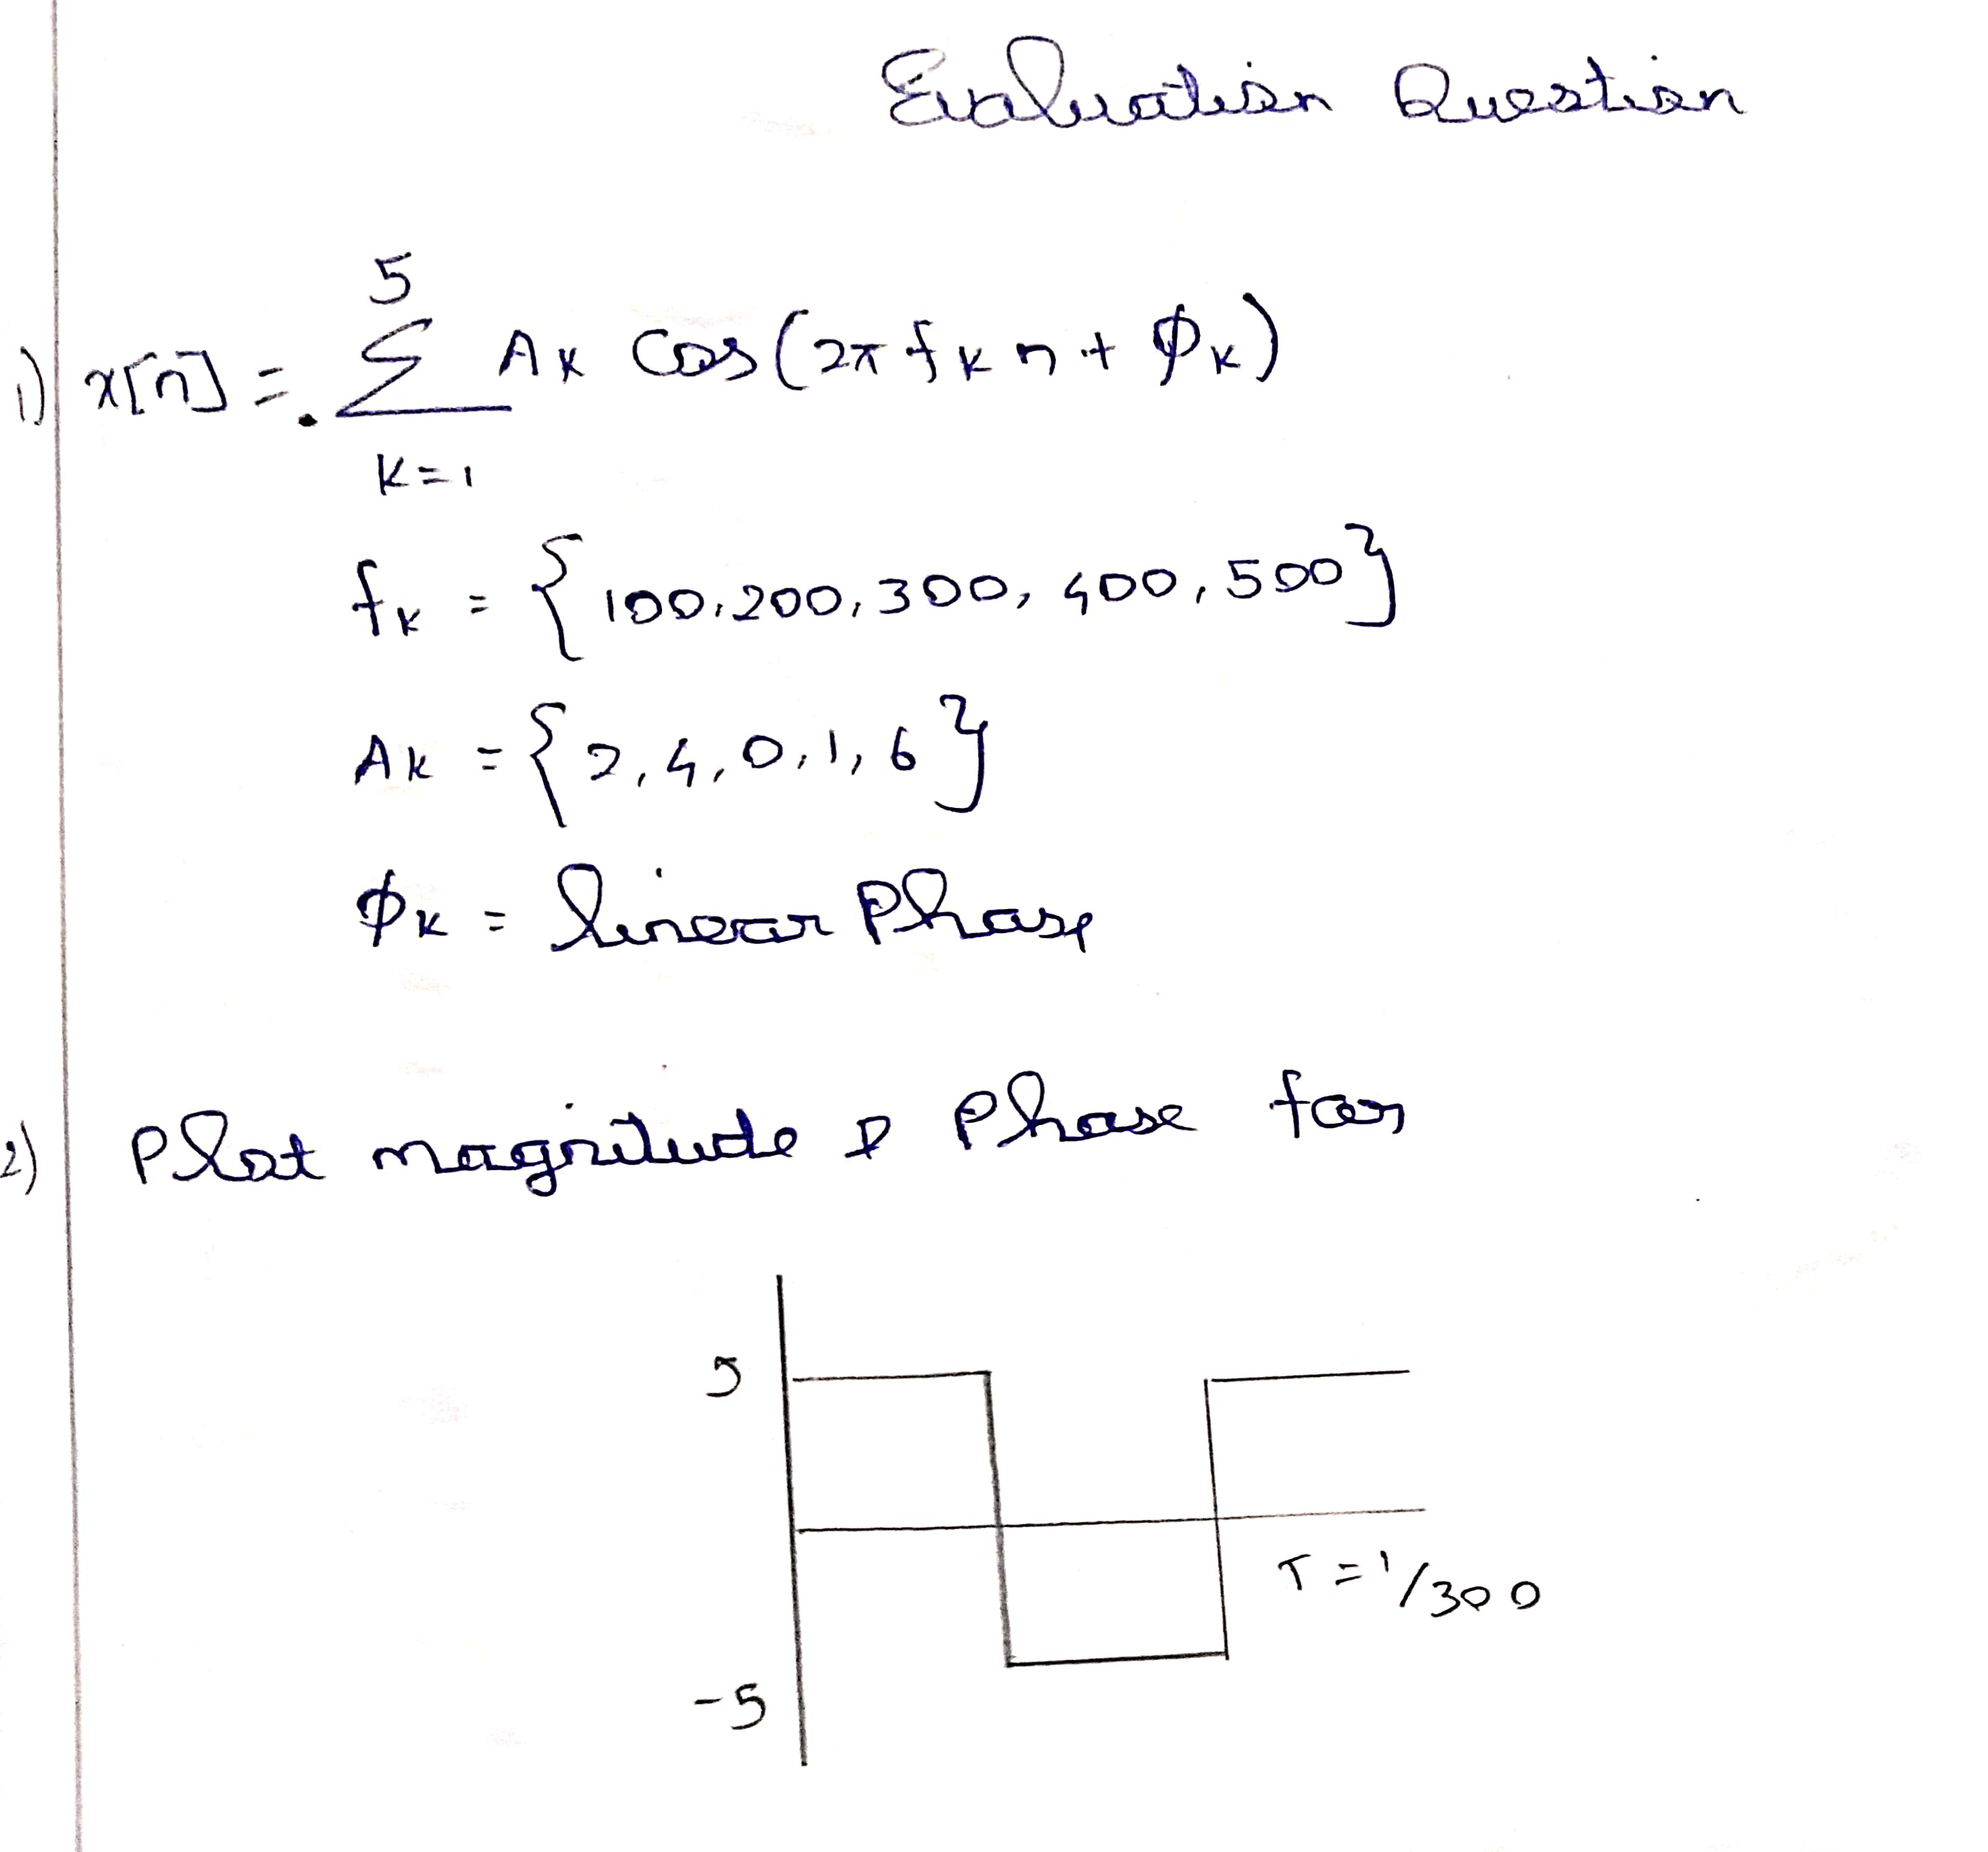 Evaluation Question
1) x[n] = . 5 Σ K=1 AK Cos(2π fK n + ϕK)
fK = {100, 200, 300, 400, 500}
AK = {2, 4, 0, 1, 6}
ϕK = linear Phase
2) Plot magnitude & Phase for
5
T = 1/300
-5